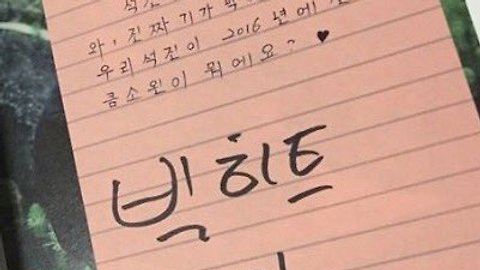 석진
와, 진짜기가
우리석진이 2016년에
큼소원이 뭐에요? ♥
빅히트